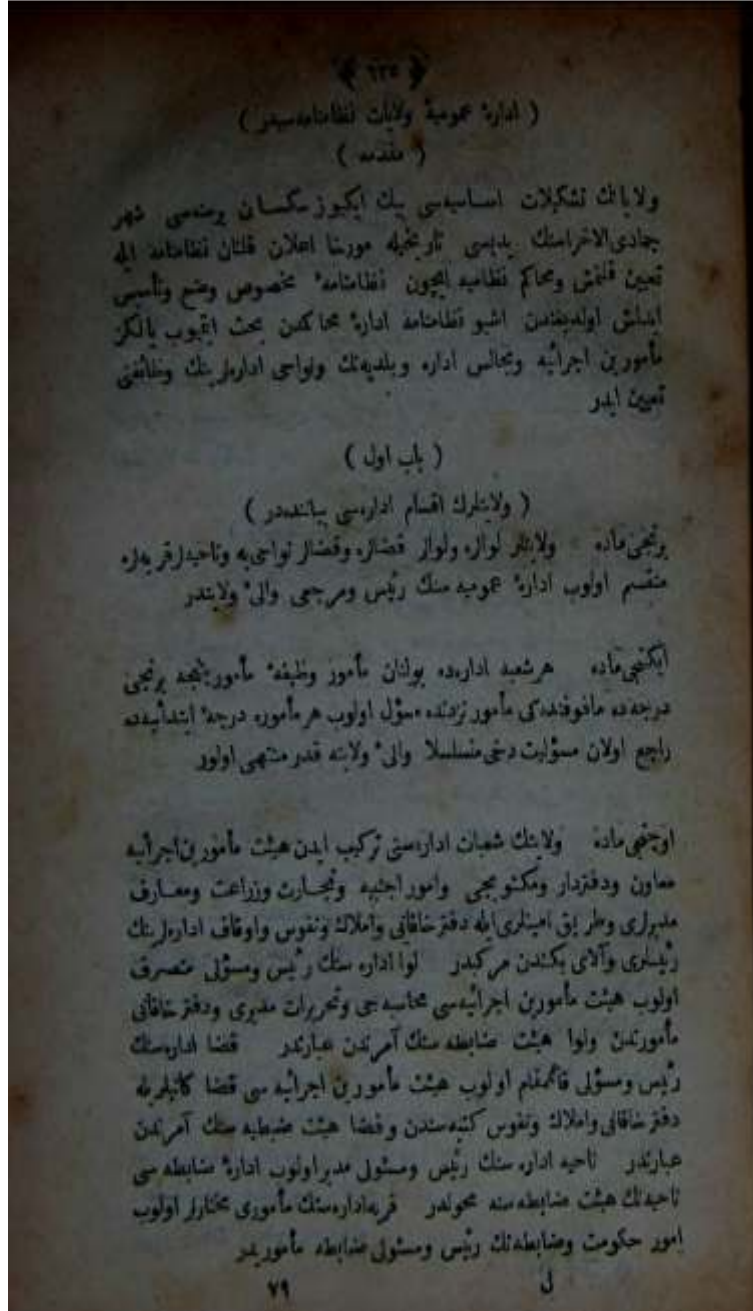 ﴿ ٦٢٥ ﴾
( ادارۀ عمومیۀ ولایات نظامنامه‌سیدر )
( مقدمه )
ولایاتك تشکیلات اساسیه‌سی بیك ایکیوز سکسان برسنه‌سی شهر
جمادی‌الاخراسنك یدیسی تاریخیله مورخا اعلان قلنان نظامنامه ایله
تعیین قلنمش ومحاکم نظامیه ایچون نظامنامۀ مخصوص وضع وتأسیس
ایدلش اولدیغندن اشبو نظامنامه ادارۀ محاکمدن بحث ایتمیوب یالکز
مأمورین اجرائیه ومجالس اداره وبلدیه‌نك ونواحی اداره‌لرینك وظائفنی
تعیین ایدر
( باب اول )
( ولایتلرك اقسام اداره‌سی بیاننده‌در )
برنجی ماده ولایتلر لوالره ولوالر قضالره وقضالر نواحی‌یه وناحیه‌لر قریه‌لره
منقسم اولوب ادارۀ عمومیه‌سنك رئیس ومرجعی والیٔ ولایتدر
ایکنجی ماده هرشعبه اداره‌ده بولنان مأمور وظیفۀ مأموریتنجه برنجی
درجه‌ده مافوقنده‌کی مأمور نزدنده مسؤل اولوب هرمأموره درجۀ ابتدائیه‌ده
راجع اولان مسؤلیت دخی متسلسلا والیٔ ولایته قدر منتهی اولور
اوچنجی ماده ولایتك شعبات اداره‌سنی ترکیب ایدن هیئت مأمورین اجرائیه
معاون ودفتردار ومکتوبجی وامور اجنبیه وتجارت وزراعت ومعارف
مدیرلری وطریق امینلری ایله دفتر خاقانی واملاك ونفوس واوقاف اداره‌لرینك
رئیسلری وآلای بکندن مرکبدر لوا اداره سنك رئیس ومسؤلی متصرف
اولوب هیئت مأمورین اجرائیه‌سی محاسبه‌جی وتحریرات مدیری ودفتر خاقانی
مأمورندن ولوا هیئت ضابطه سنك آمرندن عبارتدر قضا اداره‌سنك
رئیس ومسؤلی قائممقام اولوب هیئت مأمورین اجرائیه سی قضا کاتبلریله
دفتر خاقانی واملاك ونفوس کتبه‌سندن وقضا هیئت ضبطیه سنك آمرندن
عبارتدر ناحیه اداره سنك رئیس ومسئولی مدیر اولوب ادارۀ ضابطه سی
ناحیه‌نك هیئت ضابطه‌سنه محولدر قریه‌اداره‌سنك مأموری مختارلر اولوب
امور حکومت وضابطه‌نك رئیس ومسئولی ضابطه مأموریدر
ل ٧٩